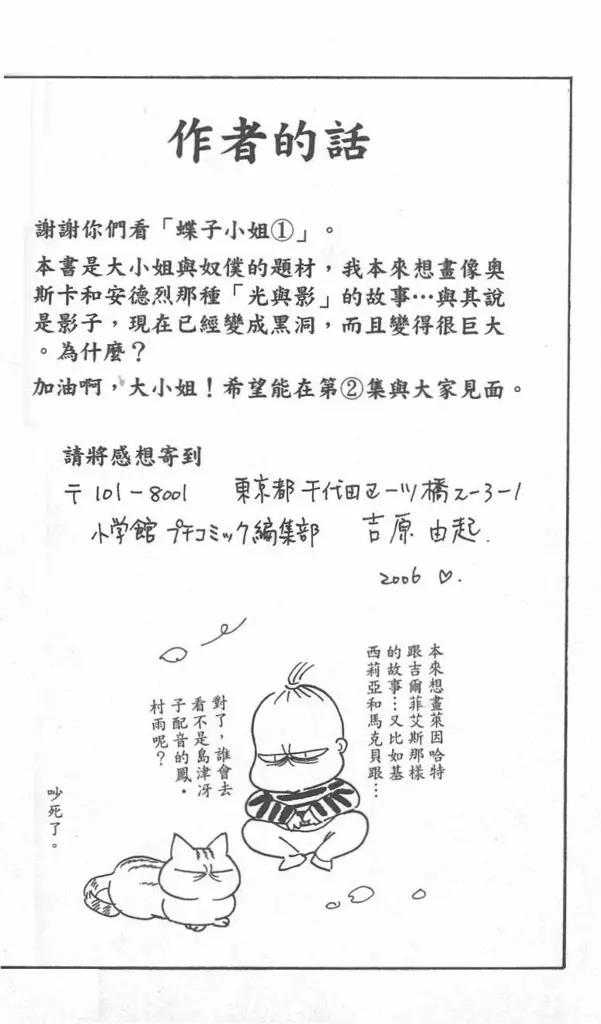 作者的話
謝謝你們看「蝶子小姐①」。
本書是大小姐與奴僕的題材，我本來想畫像奧
斯卡和安德烈那種「光與影」的故事…與其說
是影子，現在已經變成黑洞，而且變得很巨大
。為什麼？
加油啊，大小姐！希望能在第②集與大家見面。
請將感想寄到
〒101-8001 東京都千代田区一ツ橋2-3-1
小学館 プチコミック編集部 吉原由起.
2006 ♡.
本來想畫萊因哈特
跟吉爾菲艾斯那樣
的故事…又比如基
西莉亞和馬克貝跟…
對了，誰會去
看不是島津冴
子配音的鳳・
村雨呢？
吵死了。